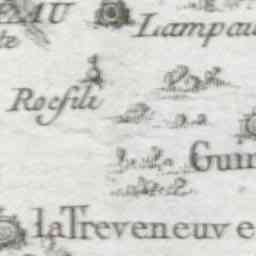 EAU
Lampau
te
Rocsili
Guin
la Treveneuve